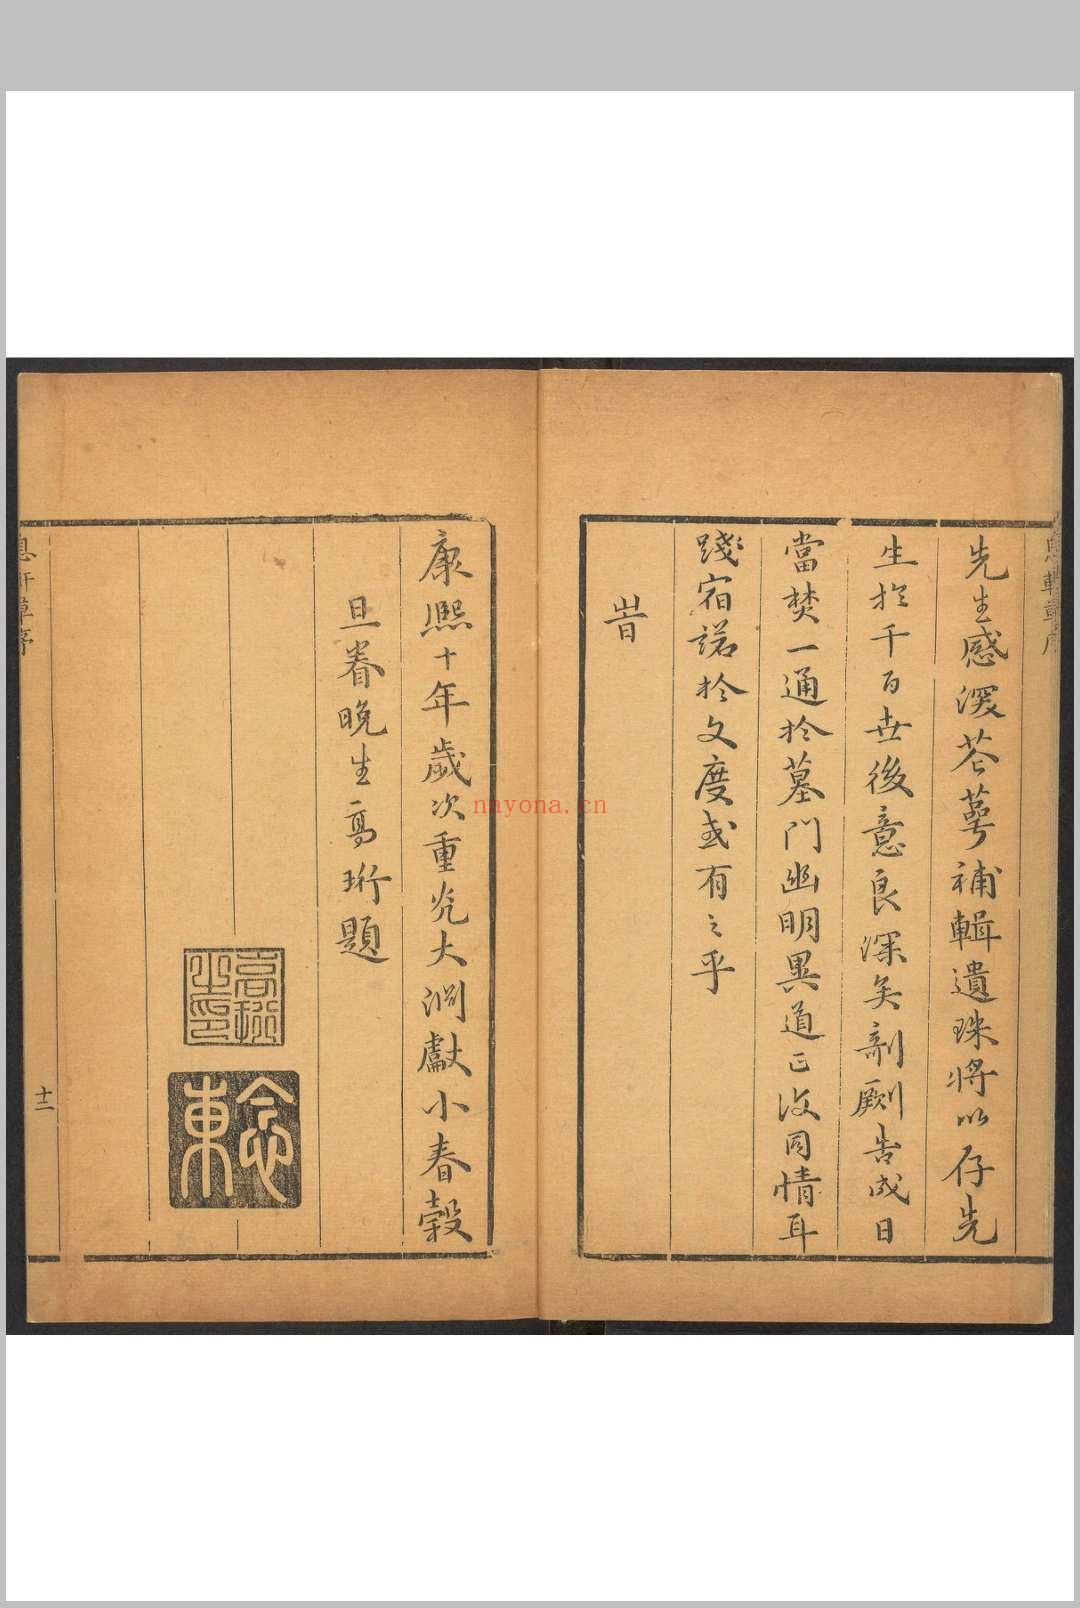 先生感深花萼補輯遺珠將以存先
生於千百世後意良深矣剞劂告成日
當焚一通於墓門幽明異道正復同情耳
踐宿諾於文度或有之乎
旹
康熙十年歲次重光大淵獻小春穀
旦眷晚生高珩題
高珩之印
念東
十二
nayona.cn